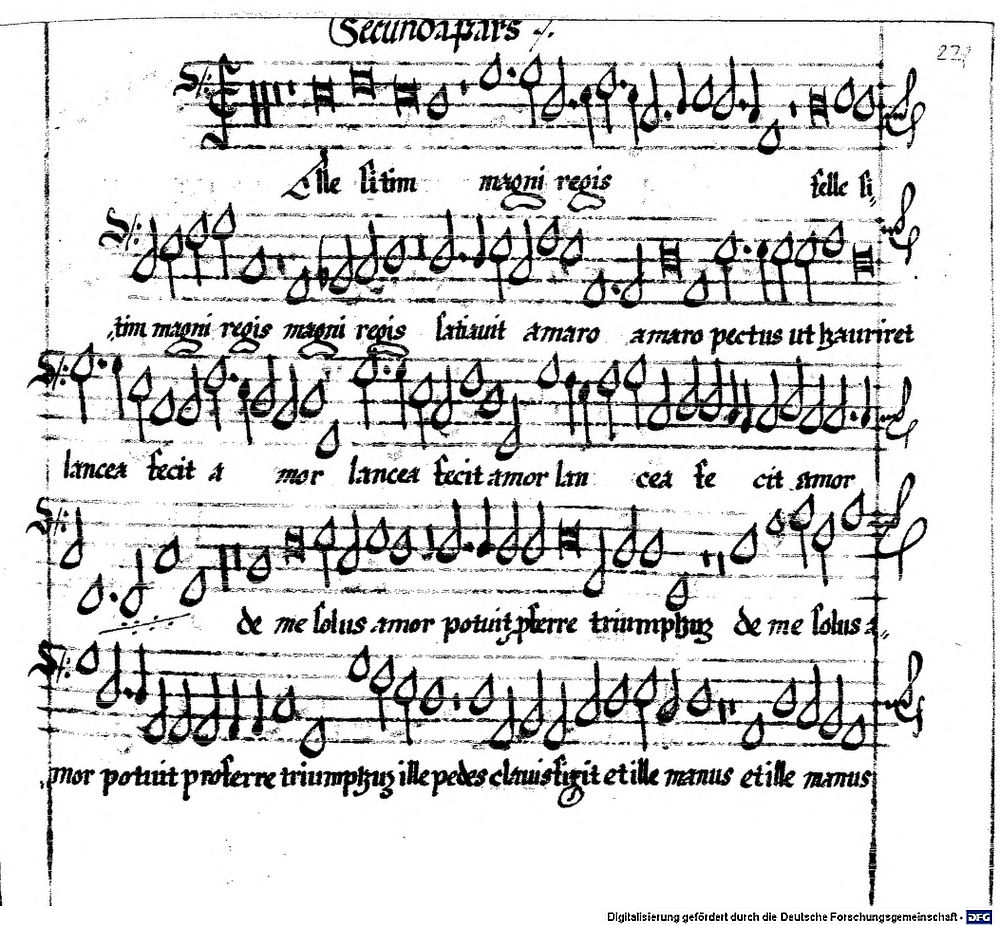 Secunda pars
221
Felle sitim magni regis felle si,,
,,tim magni regis magni regis satiauit amaro amaro pectus ut hauriret
lancea fecit a mor lancea fecit amor lan cea fe cit amor
de me solus amor potuit pferre triumphuz de me solus a,,
,,mor potuit proferre triumphuz ille pedes clauis fixit et ille manus et ille manus
Digitalisierung gefördert durch die Deutsche Forschungsgemeinschaft - DFG